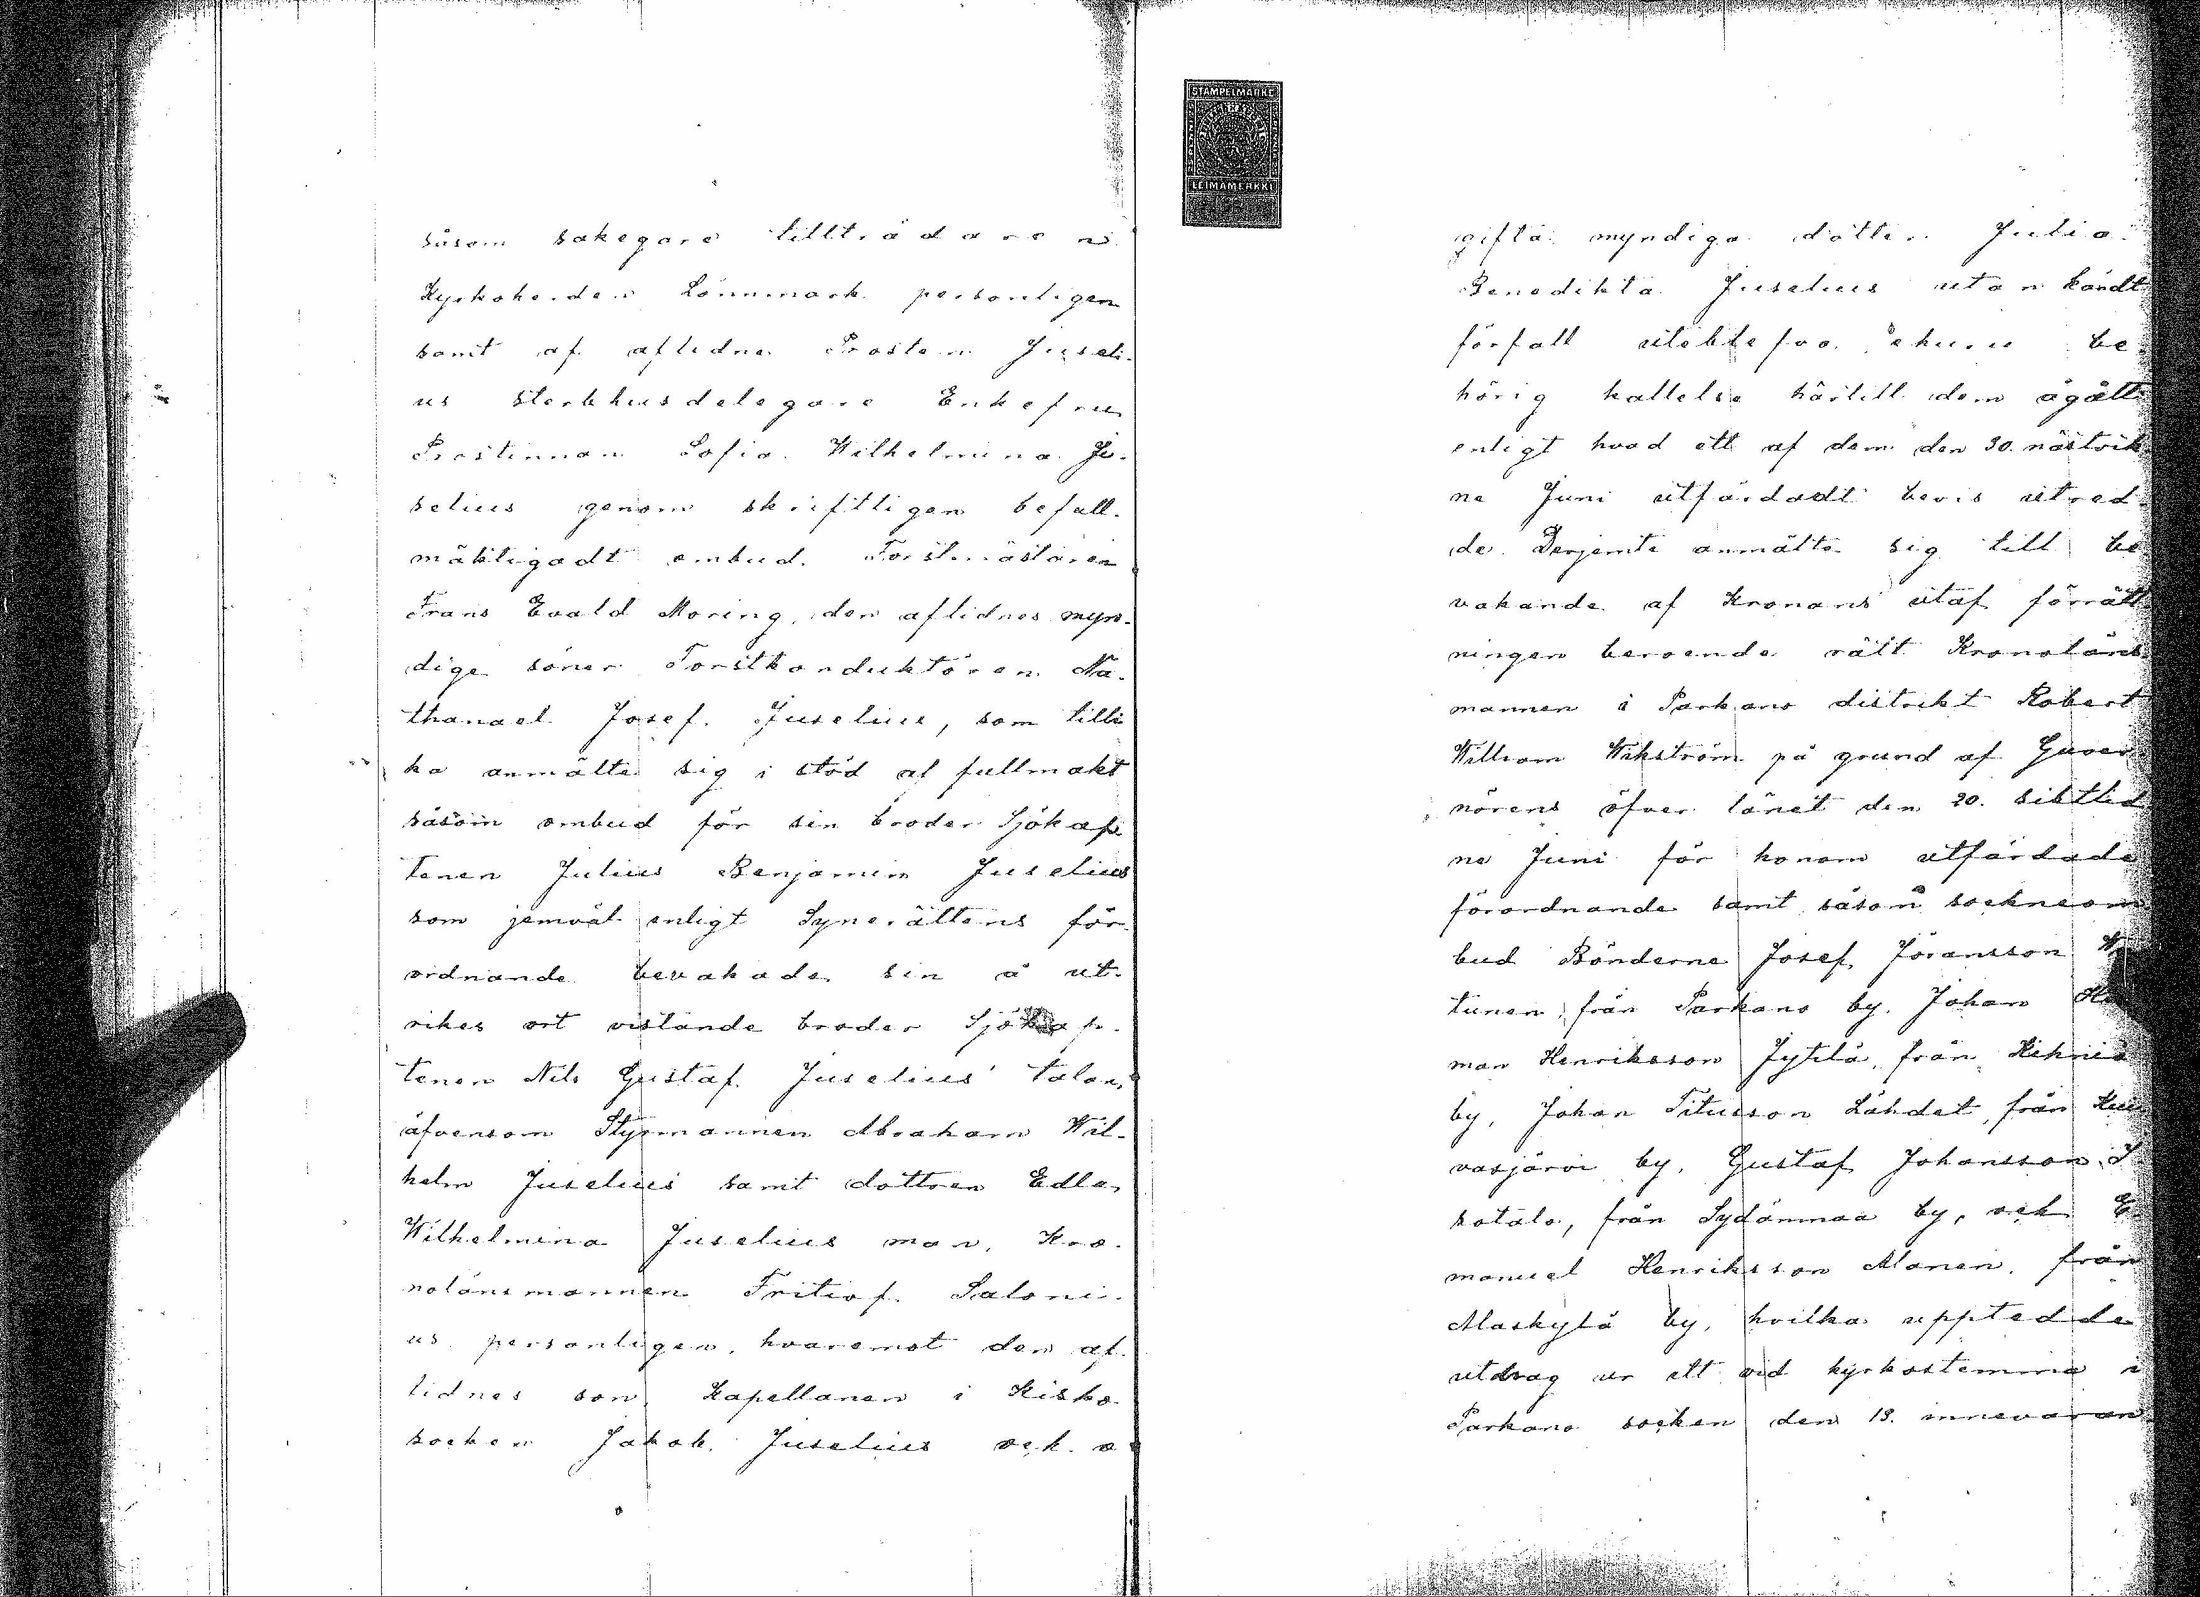 såsom sakegare tillträdaren
Kyrkoherden Lönnmark personligen
samt af aflidne Prosten Juseli-
us sterbhusdelegare Enkefru
Prostinnan Sofia Wilhelmina Ju-
selius genom skriftligen befull-
mäktigadt ombud Forstmästaren
Frans Evald Moring, den aflidnes myn-
dige söner Forstkonduktören Na-
thanael Josef Juselius, som tilli
ka anmälte sig i stöd af fullmakt
såsom ombud för sin broder Sjökap
tenen Julius Benjamin Juselius
som jemväl enligt Synerättens för
ordnande bevakade sin å ut-
rikes ort vistande broder Sjökap-
tenen Nils Gustaf Juselius' talan,
äfvensom Styrmannen Abraham Wil-
helm Juselius samt dottren Edla
Wilhelmina Juselius man, Kro-
nolänsmannen Fritiof Saloni-
us personligen, hvaremot den af-
lidnes son, Kapellanen i Kisko
socken Jakob Juselius och o
STAMPELMARKE
LEIMAMERKKI
gifta myndiga dotter Julia
Benedikta Juselius utan kändt
förfall uteblefvo, ehuru be-
hörig kallelse härtill dem ågått
enligt hvad ett af dem den 30. nästvik
ne Juni utfärdadt bevis utred-
de. Derjemte anmälte sig till be
vakande af Kronans utaf förrätt
ningen beroende rätt Kronoläns-
mannen i Parkano distrikt Robert
William Wikström på grund af Guver
nörens öfver länet den 20. sistlid
ne Juni för honom utfärdade
förordnande samt såsom sockneom
bud Bönderne Josef Jöransson
tunen, från Parkano by, Johan
man Henriksson Jytilä, från
by, Johan Titusson Lähdet, från Kui
vasjärvi by, Gustaf Johansson
sotalo, från Sydänmaa by, och E
manuel Henriksson Alanen, från
Alaskylä by, hvilka uppte­dde
utdrag ur ett vid kyrkostemma i
Parkano socken den 18. innevaran